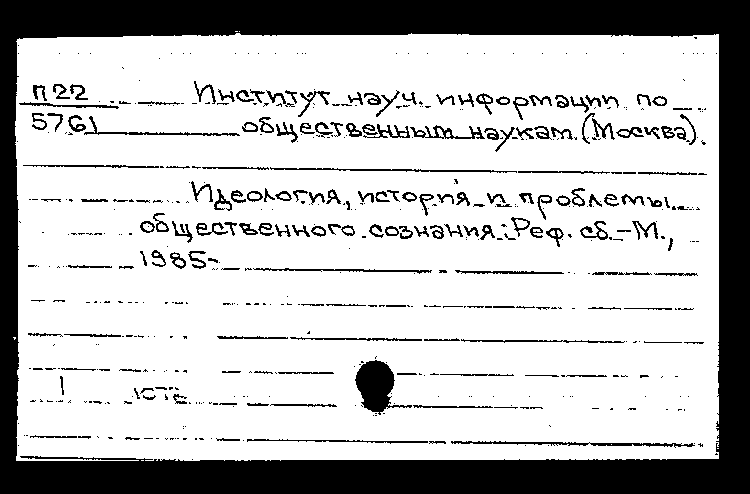 П22
5761
Институт науч. информации по
общественным наукам (Москва).
Идеология, история и проблемы
общественного сознания: Реф. сб. - М.,
1985-
1